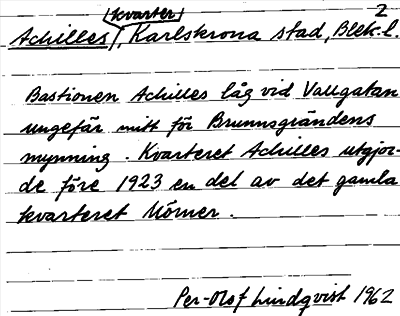 kvarter 2
Achilles, Karlskrona stad, Blek. l.
Bastionen Achilles låg vid Vallgatan
ungefär mitt för Brunnsgrändens
mynning. Kvarteret Achilles utgjor-
de före 1923 en del av det gamla
kvarteret Mörner.
Per-Olof Lindqvist 1962